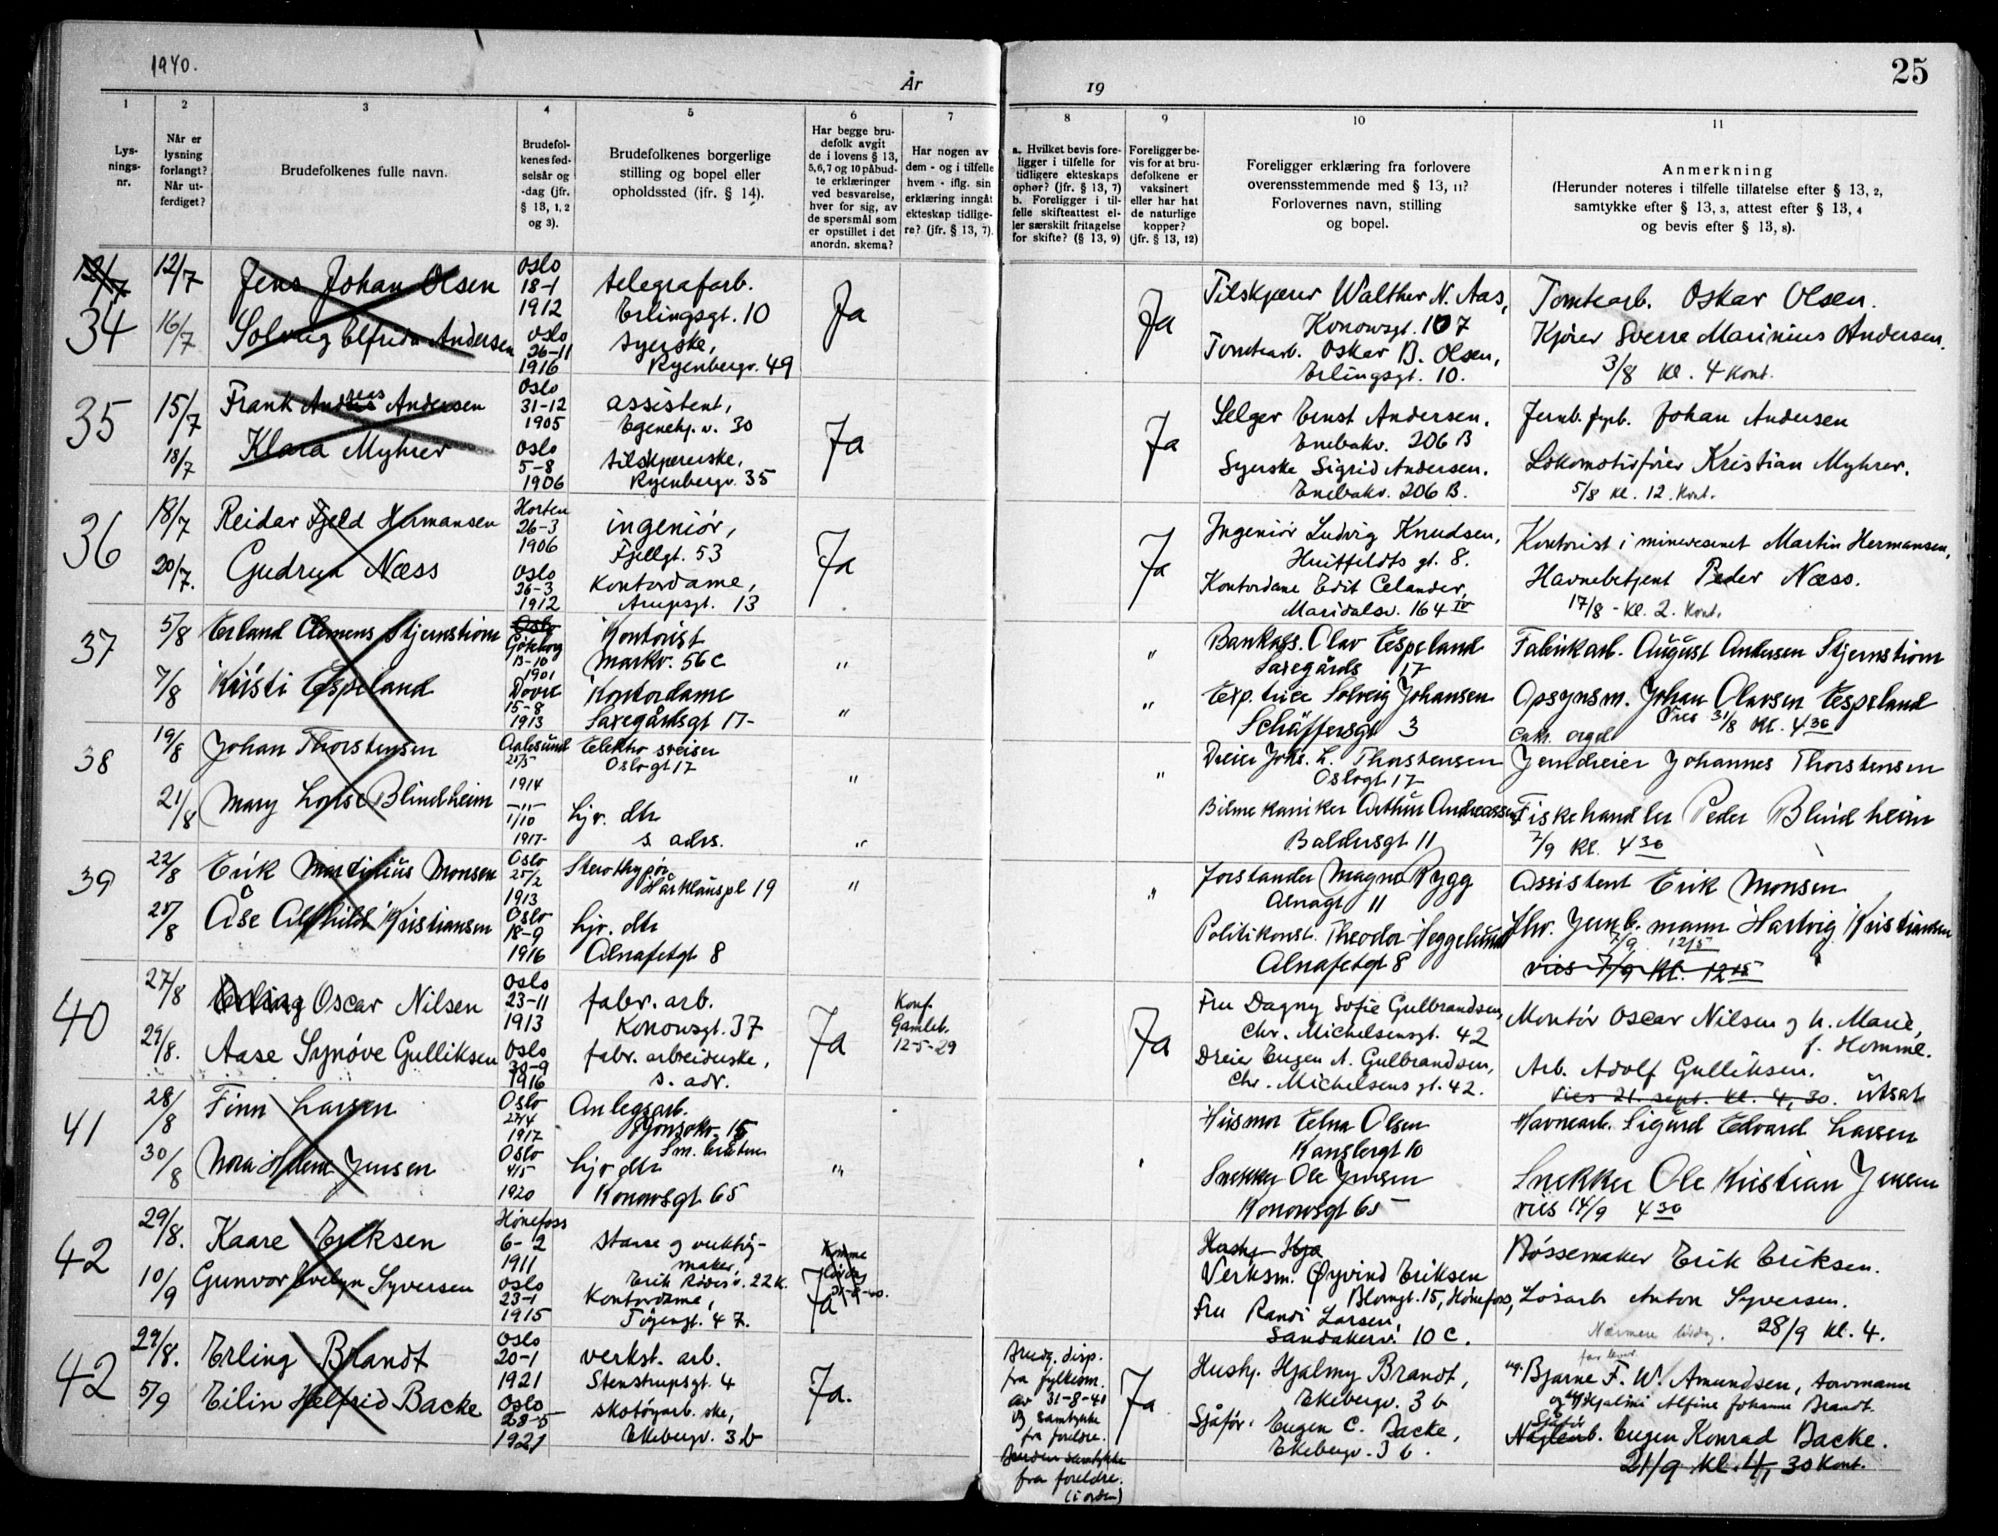 1940.
År
19
25
1
2
3
4
5
6
7
8
9
10
11
Lys-
nings-
nr.
Når er
lysning
forlangt?
Når ut-
ferdiget?
Brudefolkenes fulle navn.
Brudefol-
kenes fød-
selsår og
-dag (jfr.
§ 13, 1, 2
og 3).
Brudefolkenes borgerlige
stilling og bopel eller
opholdssted (jfr. § 14).
Har begge bru-
defolk avgit
de i lovens § 13,
5, 6, 7 og 10 påbud-
te erklæringer
ved besvarelse,
hver for sig, av
de spørsmål som
er opstillet i det
anordn. skema?
Har nogen av
dem - og i tilfelle
hvem - iflg. sin
erklæring inngåt
ekteskap tidlige-
re? (jfr. § 13, 7).
a. Hvilket bevis fore-
ligger i tilfelle for
tidligere ekteskaps
ophør? (jfr. § 13, 7)
b. Foreligger i til-
felle skifteattest el-
ler særskilt fritagelse
for skifte? (§ 13, 9)
Foreligger be-
vis for at bru-
defolkene er
vaksinert
eller har hat
de naturlige
kopper?
(jfr. § 13, 12)
Foreligger erklæring fra forlovere
overensstemmende med § 13, 11?
Forlovernes navn, stilling
og bopel.
Anmerkning
(Herunder noteres i tilfelle tillatelse efter § 13, 2,
samtykke efter § 13, 3, attest efter § 13, 4
og bevis efter § 13, 8).
34
12/7
16/7
Jens Johan Olsen
Solveig Elfrida Andersen
Oslo
18-1
1912
Oslo
26-11
1916
telegrafarb.
Erlingsgt. 10
syerske,
Ryenbergv. 49
Ja
Ja
Tilskjærer Walther N. Aas,
Konowsgt. 107
Tomtearb. Oskar B. Olsen,
Erlingsgt. 10.
Tomtearb. Oskar Olsen.
Kjører Sverre Marinius Andersen.
3/8 Kl. 4 Kont.
35
15/7
18/7
Frank Andreas Andersen
Klara Myhrer
Oslo
31-12
1905
Oslo
5-8
1906
assistent,
Egenehj. v. 30
tilskjærerske,
Ryenbergv. 35
Ja
Ja
Selger Ernst Andersen.
Enebakv. 206 B
Syerske Sigrid Andersen.
Enebakv. 206 B.
Johan Andersen
Lokomotivfører Kristian Myhrer.
5/8 Kl. 12. Kont.
36
18/7
20/7.
Reidar Fjeld Hermansen
Gudrun Næss
Horten
26-3
1906
Oslo
26-3
1912
ingeniør,
Fjellgt. 53
Kontordame,
Arupsgt. 13
Ja
Ja
Ingeniør Ludvig Knudsen,
Huitfeldts gt. 8.
Kontordame Edit Celander,
Maridalsv. 164 IV
Kontorist i minevesenet Martin Hermansen,
Havnebetjent Peder Næss.
17/8 - Kl. 2. Kont.
37
5/8
7/8
Erland Clemens Stjernstrøm
Kristi Espeland
Oslo
Göteborg
13-10
1901
Dovre
15-8
1913
Kontorist
Markv. 56 c
Kontordame
Saxegårdsgt 17-
"
"
"
"
Bankass. Olav Espeland
Saxegårds 17
Exp. trice Solveig Johansen
Schäffersgt 3
Fabrikarb. August Andersen Stjernstrøm
Opsynsm. Johan Olavsen Espeland
Vies 31/8 Kl. 4 30
Enk. orgel
38
19/8
21/8
Johan Thorstensen
Mary Lovise Blindheim
Aalesund
20/5
1914
-"-
1/10
1917-
Elektro sveiser
Oslogt 17
hjv. dtr
s. adrs.
"
"
"
Dreier Johs. L. Thorstensen
Oslogt 17
Bilmekaniker Arthur Andreassen
Baldersgt 11
Jerndreier Johannes Thorstensen
Fiskehandler Peder Blindheim
7/9 Kl. 4 30
39
22/8
28/8
Erik Martinius Monsen
Åse Alfhild Kristiansen
Oslo
25/2
1913
Oslo
18-9
1916
Harklauspl 19
hjv. dtr
Alnafetgt 8
"
"
Forstander Magne Rygg
Alnagt 11
Politikonst. Theodor Heggelund
Alnafetgt 8
Assistent Erik Monsen
Fhv. Jernb. mann Hartvig Kristiansen
7/9 12 15
vies 7/9 Kl. 12 15
40
27/8
29/8.
Erling Oscar Nilsen
Aase Synøve Gulliksen
Oslo
23-11
1913
Oslo
30-9
1916
fabr. arb.
Konowsgt. 37
fabr. arbeiderske,
s. adr.
Ja
Konf.
Gamleb.
12-5-29
Ja
Fru Dagny Sofie Gulbrandsen,
Chr. Michelsensgt. 42
Dreier Eugen A. Gulbrandsen,
Chr. Michelsens gt. 42.
Montør Oscar Nilsen og h. Marie,
f. Homme.
Arb. Adolf Gulliksen.
Vies 21. sept. Kl. 4,30. utsat
41
28/8
30/8
Finn Larsen
Nora Helene Jensen
Oslo
27/4
1917
Oslo
4/5
1920
Anlegsarb.
hjv dtr
Konowsgt 65
"
Husmor Elna Olsen
Kanslergt 10
Snekker Ole Jensen
Konowsgt 65
Havnearb. Sigurd Edvard Larsen
Snekker Ole Kristian Jensen
vies 14/9 4 30
42
29/8.
10/9
Kaare Eriksen
Gunvor Evelyn Syversen
Hønefoss
6-2
1911
Oslo
23-1
1915
Stanse og verktøy-
maker,
Erik Rødes v. 22 K.
Kontordame,
Tøyengt. 47.
Ja
Hushj. Hja
Verksm. Øyvind Eriksen
Blomgt. 15, Hønefoss,
Fru Randi Larsen,
Sandakerv. 10 C.
Bøssemaker Erik Eriksen.
Løsarb Anton Syversen.
28/9 Kl. 4.
42
29/8.
5/9
Erling Brandt
Eilin Helfrid Backe
Oslo
20-1
1921
Oslo
28-5
1921
verkst. arb.
Stenstrupsgt. 4
skotøyarb. ske,
Ekebergv. 3 b
Ja.
Brudg. disp.
fra fylkesm.
av 31-8-40
og samtykke
fra foreldre.
Bruden samtykke
fra foreldre.
(i orden)
Ja
Hushj. Hjalmy Brandt,
Ekebergv. 3 b
Sjåfør: Eugen C. Backe,
Ekebergv. 3 b.
Bjarne F. W. Amundsen, tovmann
og Hjalmi Alfine Johanne Brandt.
Sjåfør
Eugen Konrad Backe.
21/9 Kl. 4, 30 Kont.